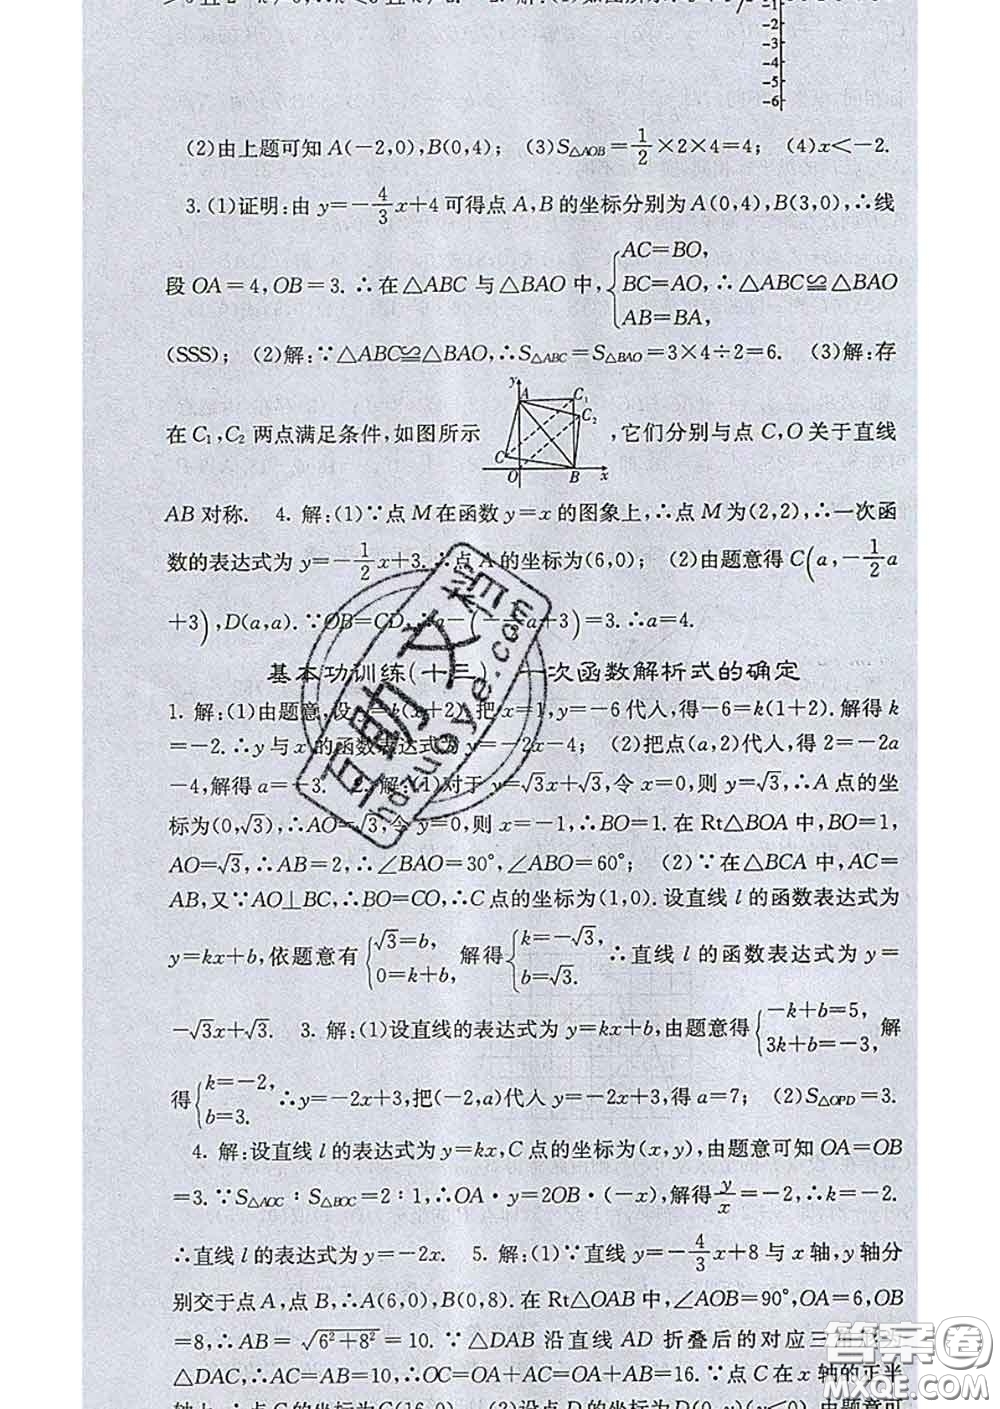 -1
-2
-3
-4
-5
-6
(2)由上题可知 A(-2,0),B(0,4); (3)S△AOB=1/2×2×4=4; (4)x<-2.
3.(1)证明:由 y=-4/3x+4 可得点 A,B 的坐标分别为 A(0,4),B(3,0),∴线
段 OA=4,OB=3. ∴在△ABC 与△BAO 中,{AC=BO, BC=AO, AB=BA, ∴△ABC≌△BAO
(SSS); (2)解:∵△ABC≌△BAO,∴S△ABC=S△BAO=3×4÷2=6. (3)解:存
在 C₁,C₂ 两点满足条件,如图所示
y A C₁ C₂ C O B x
,它们分别与点 C,O 关于直线
AB 对称. 4. 解:(1)∵点 M 在函数 y=x 的图象上,∴点 M 为(2,2),∴一次函
数的表达式为 y=-1/2x+3.∴点 A 的坐标为(6,0); (2)由题意得 C(a,-1/2a
+3),D(a,a).∵OB=CD,∴a-(-1/2a+3)=3.∴a=4.
基本功训练(十三) 一次函数解析式的确定
1. 解:(1)由题意,设 y=k(x+2),把 x=1,y=-6代人,得-6=k(1+2).解得 k
=-2.∴y 与 x 的函数表达式为 y=-2x-4; (2)把点(a,2)代人,得 2=-2a
-4,解得 a=-3. 2. 解:(1)对于 y=√3x+√3,令 x=0,则 y=√3,∴A 点的坐
标为(0,√3),∴AO=√3,令 y=0,则 x=-1,∴BO=1. 在 Rt△BOA 中,BO=1,
AO=√3,∴AB=2,∴∠BAO=30°,∠ABO=60°; (2)∵在△BCA 中,AC=
AB,又∵AO⊥BC,∴BO=CO,∴C 点的坐标为(1,0).设直线 l 的函数表达式为
y=kx+b,依题意有{√3=b, 0=k+b, 解得{k=-√3, b=√3. ∴直线 l 的函数表达式为 y=
-√3x+√3. 3. 解:(1)设直线的表达式为 y=kx+b,由题意得{-k+b=5, 3k+b=-3, 解
得{k=-2, b=3. ∴y=-2x+3,把(-2,a)代人 y=-2x+3,得 a=7; (2)S△OPD=3.
4. 解:设直线 l 的表达式为 y=kx,C 点的坐标为(x,y),由题意可知 OA=OB
=3.∵S△AOC:S△BOC=2:1,∴OA·y=2OB·(-x),解得y/x=-2,∴k=-2.
∴直线 l 的表达式为 y=-2x. 5. 解:(1)∵直线 y=-4/3x+8 与 x 轴,y 轴分
别交于点 A,点 B,∴A(6,0),B(0,8).在 Rt△OAB 中,∠AOB=90°,OA=6,OB
=8,∴AB=√6²+8²=10. ∵△DAB 沿直线 AD 折叠后的对应三角形
△DAC,∴AC=AB=10,∴OC=OA+AC=OA+AB=16.∵点 C 在 x 轴的正半
轴上,∴点 C 的坐标为 C(16,0). (2)设点 D 的坐标为 D(0,y)(y<0),由题意可
互助文档
hdzuoye.com
答案圈
MXQE.COM